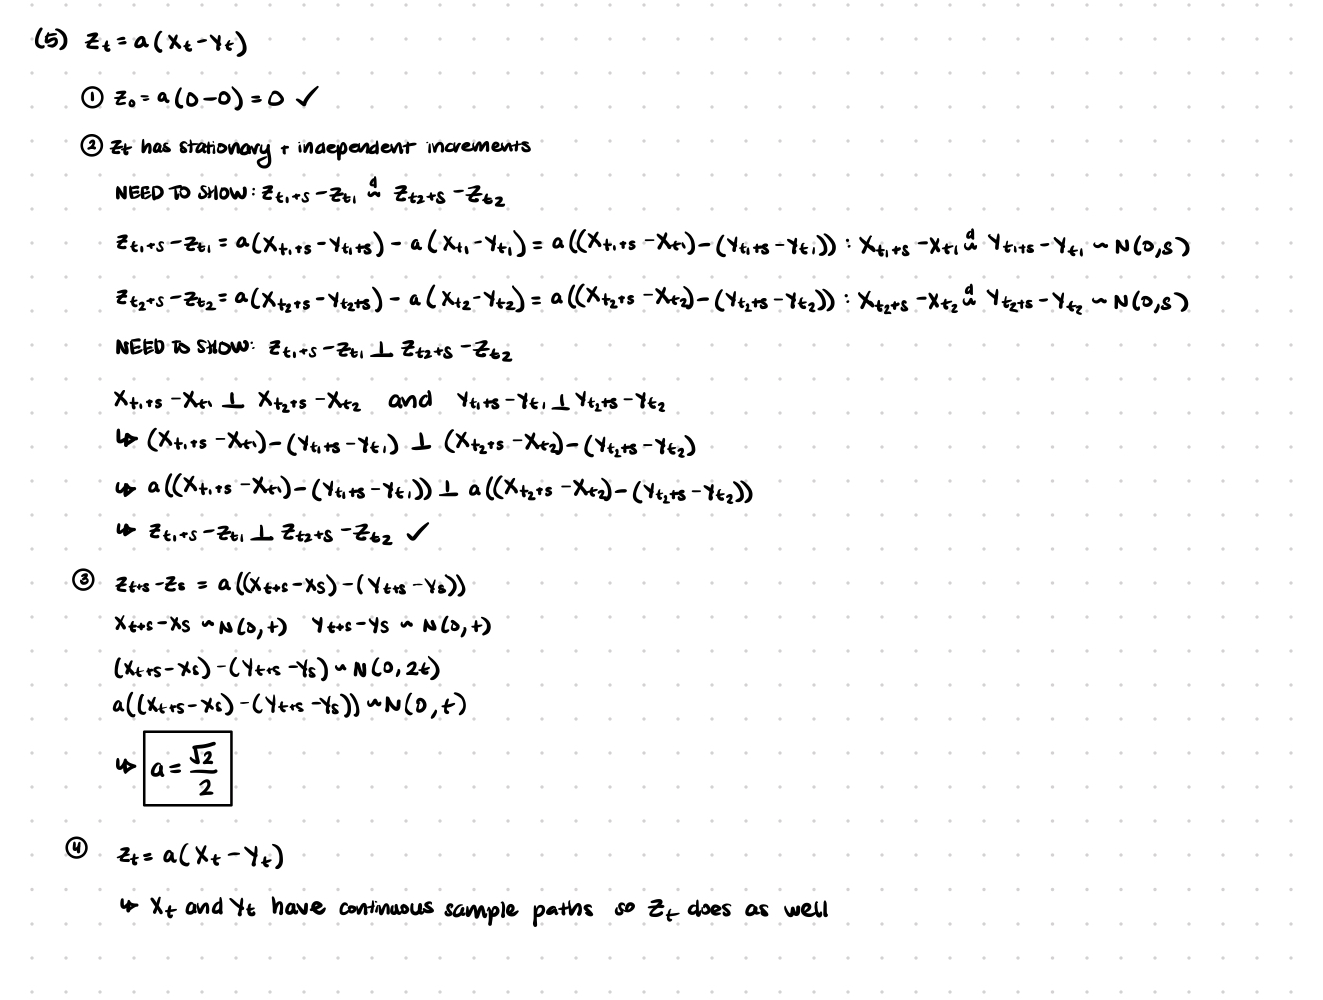 (5) Z_t = a(X_t - Y_t)
① Z_0 = a(0-0) = 0 ✓
② Z_t has stationary + independent increments
NEED TO SHOW: Z_{t_1+s} - Z_{t_1} ~^d Z_{t_2+s} - Z_{t_2}
Z_{t_1+s} - Z_{t_1} = a(X_{t_1+s} - Y_{t_1+s}) - a(X_{t_1} - Y_{t_1}) = a((X_{t_1+s} - X_{t_1}) - (Y_{t_1+s} - Y_{t_1})) : X_{t_1+s} - X_{t_1} ~^d Y_{t_1+s} - Y_{t_1} ~ N(0,s)
Z_{t_2+s} - Z_{t_2} = a(X_{t_2+s} - Y_{t_2+s}) - a(X_{t_2} - Y_{t_2}) = a((X_{t_2+s} - X_{t_2}) - (Y_{t_2+s} - Y_{t_2})) : X_{t_2+s} - X_{t_2} ~^d Y_{t_2+s} - Y_{t_2} ~ N(0,s)
NEED TO SHOW: Z_{t_1+s} - Z_{t_1} ⊥ Z_{t_2+s} - Z_{t_2}
X_{t_1+s} - X_{t_1} ⊥ X_{t_2+s} - X_{t_2} and Y_{t_1+s} - Y_{t_1} ⊥ Y_{t_2+s} - Y_{t_2}
↳ (X_{t_1+s} - X_{t_1}) - (Y_{t_1+s} - Y_{t_1}) ⊥ (X_{t_2+s} - X_{t_2}) - (Y_{t_2+s} - Y_{t_2})
↳ a((X_{t_1+s} - X_{t_1}) - (Y_{t_1+s} - Y_{t_1})) ⊥ a((X_{t_2+s} - X_{t_2}) - (Y_{t_2+s} - Y_{t_2}))
↳ Z_{t_1+s} - Z_{t_1} ⊥ Z_{t_2+s} - Z_{t_2} ✓
③ Z_{t+s} - Z_s = a((X_{t+s} - X_s) - (Y_{t+s} - Y_s))
X_{t+s} - X_s ~ N(0,t) Y_{t+s} - Y_s ~ N(0,t)
(X_{t+s} - X_s) - (Y_{t+s} - Y_s) ~ N(0, 2t)
a((X_{t+s} - X_s) - (Y_{t+s} - Y_s)) ~ N(0, t)
↳ a = √2/2
④ Z_t = a(X_t - Y_t)
↳ X_t and Y_t have continuous sample paths so Z_t does as well